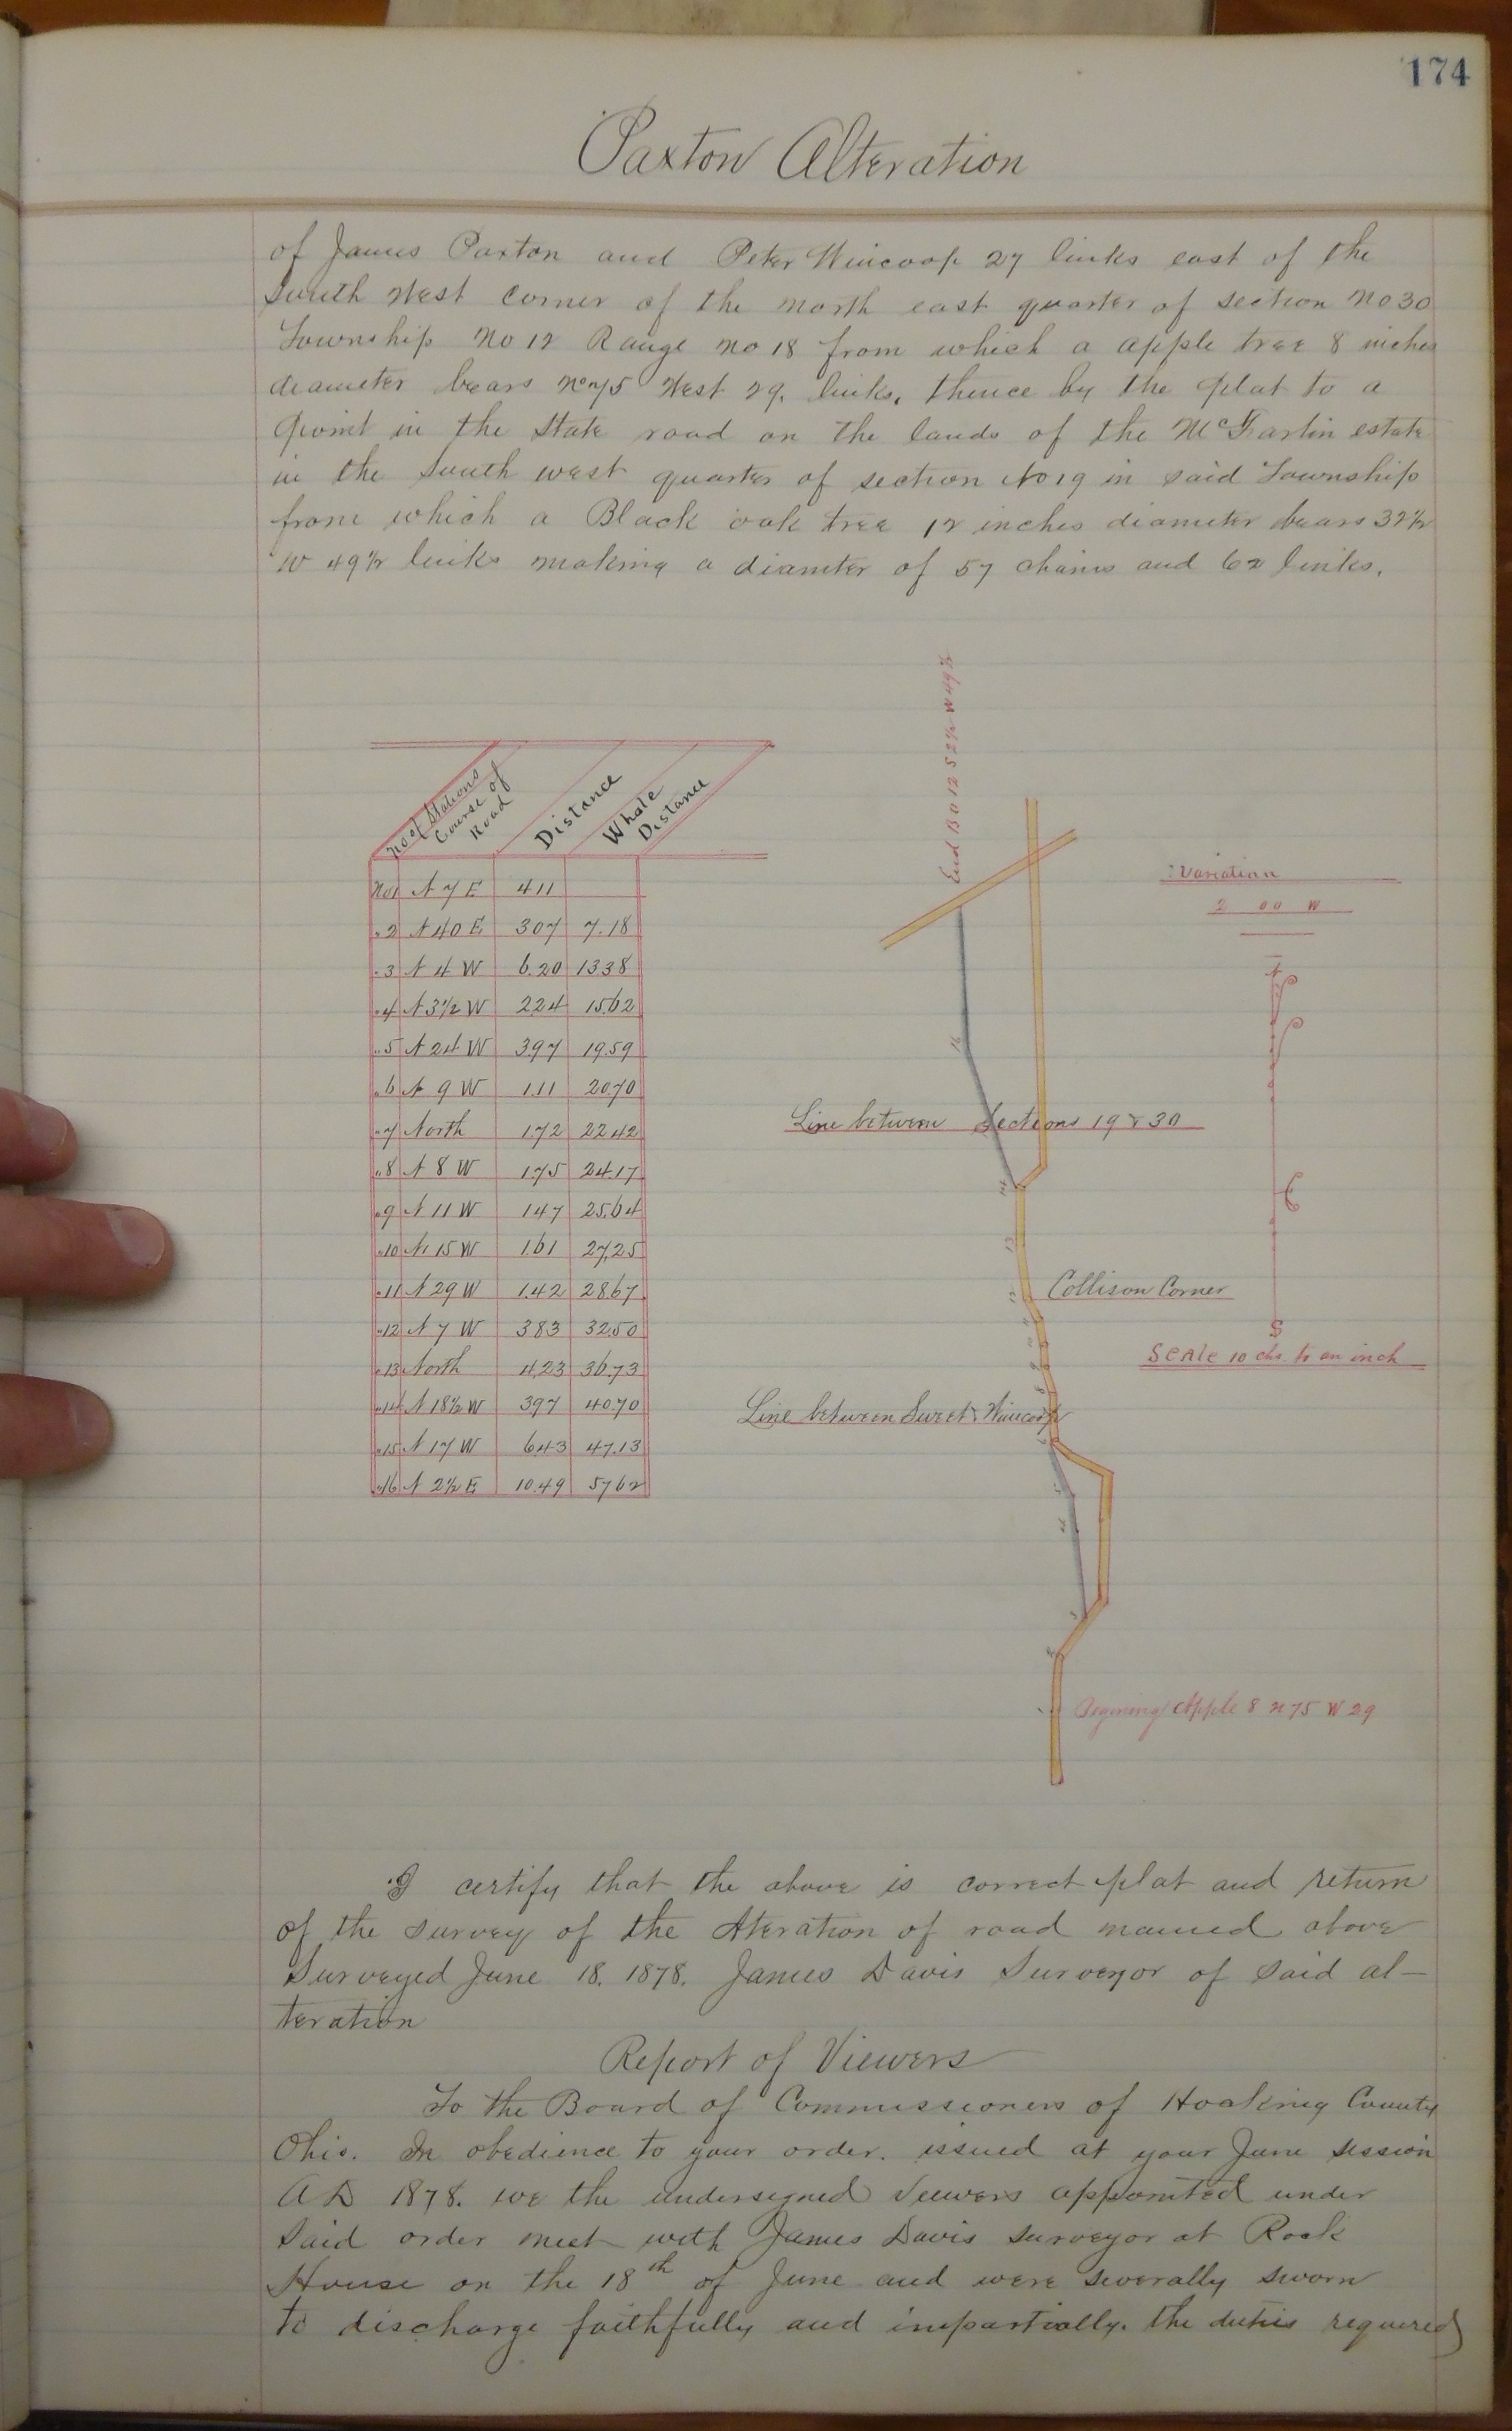 174
Paxton Alteration
of James Paxton and Peter Wincoop 27 links east of the
South West Corner of the north east quarter of section No 30
Township No 12 Range no 18 from which a apple tree 8 inches
diameter bears No 75 West 29. links, thence by the plat to a
point in the State road on the lands of the estate
in the South west quarter of section No 19 in said Township
from which a Black oak tree 12 inches diameter bears
W 49½ links making a diamter of 57 chains and 62 links.
No of Stations
Course of Road
Distance
Whole Distance
No1 N 7 E 411
"2 N 40 E 307 7.18
"3 N 4 W 6.20 1338
"4 N 3½ W 224 15.62
"5 N 24 W 397 19.59
"6 N 9 W 1.11 20.70
"7 North 1.72 22.42
"8 N 8 W 1.75 24.17
"9 N 11 W 147 25.64
"10 N 15 W 1.61 27.25
"11 N 29 W 1.42 28.67
"12 N 7 W 383 32.50
"13 North 4.23 36.73
"14 N 18½ W 397 40.70
"15 N 17 W 643 47.13
"16 N 2½ E 10.49 5762
End B O 12 S 2½ W 49½
Variation
2 00 W
N
Line between Sections 19 & 30
Collison Corner
S
Scale 10 chs. to an inch
Line between Sweet & Wincoop
Begining Apple 8 N 75 W 29
I certify that the above is correct plat and return
of the survey of the Ateration of road named above
Surveyed June 18. 1878. James Davis Surveyor of said al-
teration
Report of Viewers
To the Board of Commissioners of Hocking County
Ohio. In obedience to your order. issued at your June session
AD 1878. we the undersigned Viewers appointed under
Said order meet with James Davis surveyor at Rock
House on the 18th of June and were severally sworn
to discharge faithfully and impartially. the duties required